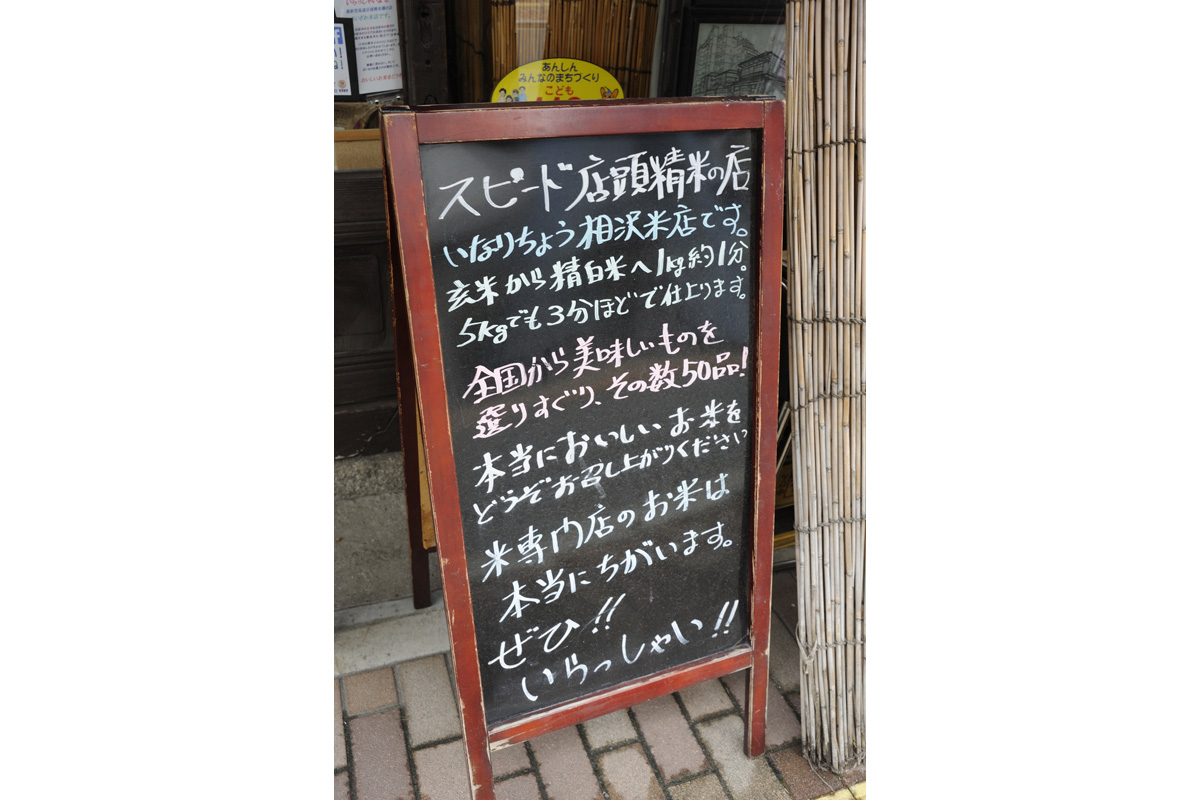 あんしん
みんなのまちづくり
こども
スピード店頭精米の店
いなりちょう相沢米店です。
玄米から精白米へ1kg約1分。
5kgでも3分ほどで仕上ります。
全国から美味しいものを
選りすぐり、その数50品!
本当においしいお米を
どうぞお召し上がりください
米専門店のお米は
本当にちがいます。
ぜひ!!
いらっしゃい!!